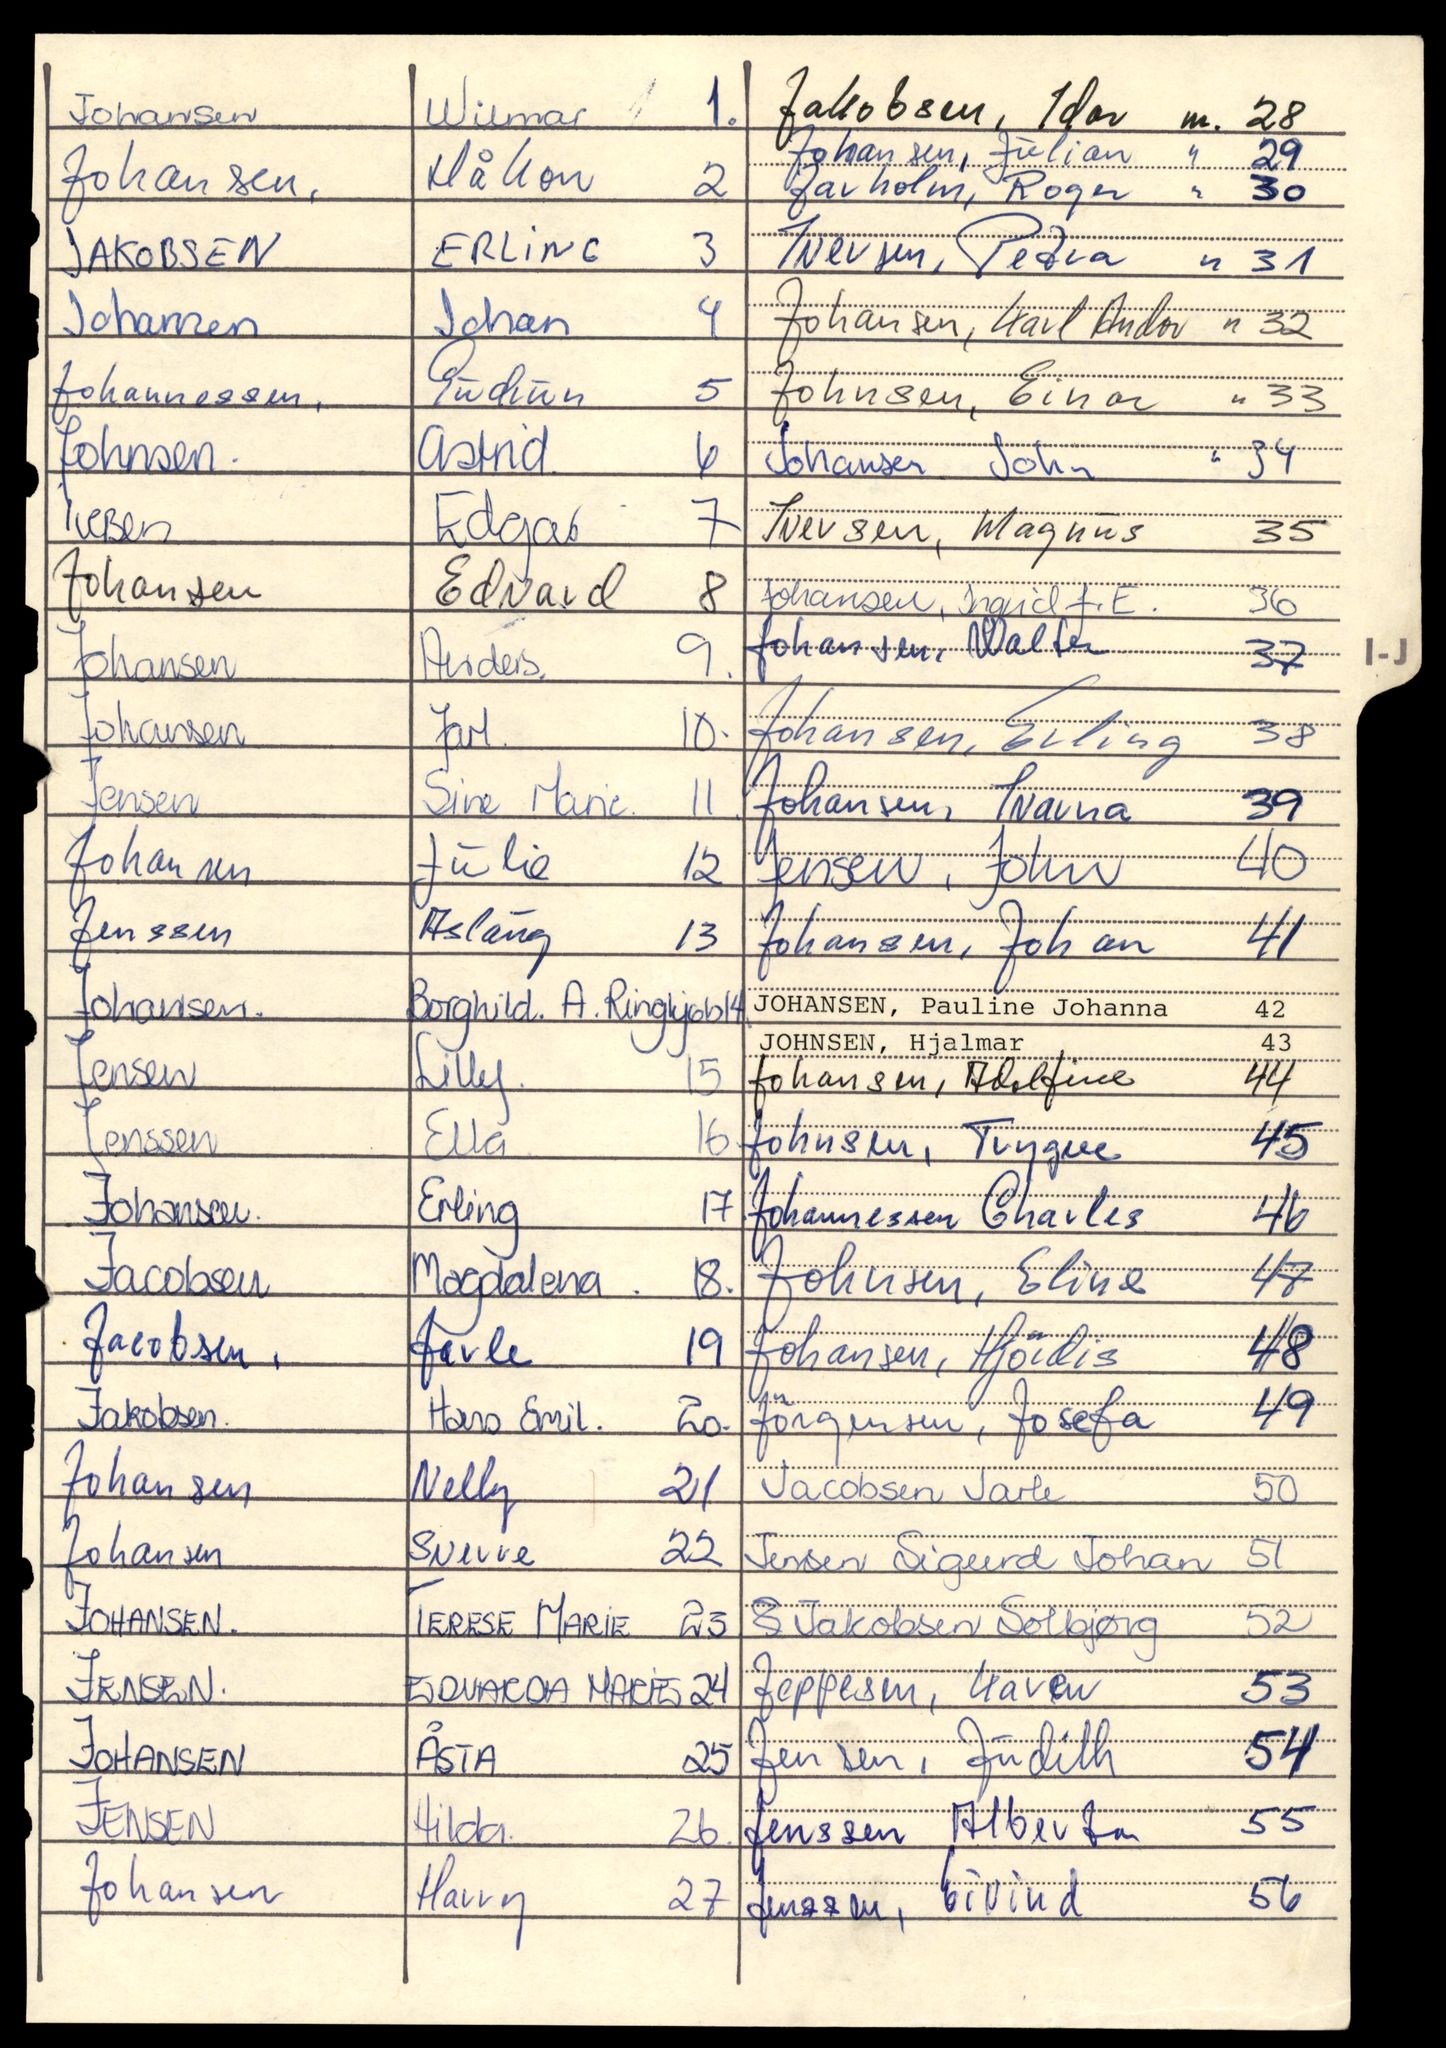 Johansen Wilmar 1.
Johansen, Håkon 2
JAKOBSEN ERLING 3
Johansen Johan 4
Johannessen, Gudrun 5
Johnsen. Astrid 6
Iversen Edgar 7
Johansen Edvard 8
Johansen Anders. 9.
Johansen Jarl. 10.
Jensen Sine Marie. 11.
Johansen Julie 12
Jenssen Aslaug 13
Johansen. Borghild. A. Ringkjøb 14.
Jensen Lilly. 15
Jenssen Ella 16
Johansen. Erling 17
Jacobsen Magdalena. 18.
Jacobsen, Jarle 19
Jakobsen. Hans Emil. 20.
Johansen Nelly 21
Johansen Sverre 22
JOHANSEN. TERESE MARIE 23
JENSEN. EDVARDA MARIE 24
JOHANSEN ÅSTA 25
JENSEN Hilda. 26.
Johansen Harry 27
Jakobsen, Idar m. 28
Johansen, Julian " 29
Jarholm, Roger " 30
Iversen, Petra " 31
Johansen, Karl Andor " 32
Johnsen, Einar " 33
Johansen John " 34
Iversen, Magnus 35
Johansen, Ingrid f. E. 36
Johansen, Walter 37
Johansen, Erling 38
Johansen, Ivarna 39
Jensen, John 40
Johansen, Johan 41
JOHANSEN, Pauline Johanna 42
JOHNSEN, Hjalmar 43
Johansen, Adolfine 44
Johnsen, Trygve 45
Johannessen Charles 46
Johnsen, Eline 47
Johansen, Hjördis 48
Jörgensen, Josefa 49
Jacobsen Jarle 50
Jensen Sigurd Johan 51
Jakobsen Solbjørg 52
Jeppesen, Karen 53
Jensen, Judith 54
Jenssen Alberta 55
Jenssen, Eivind 56
I-J